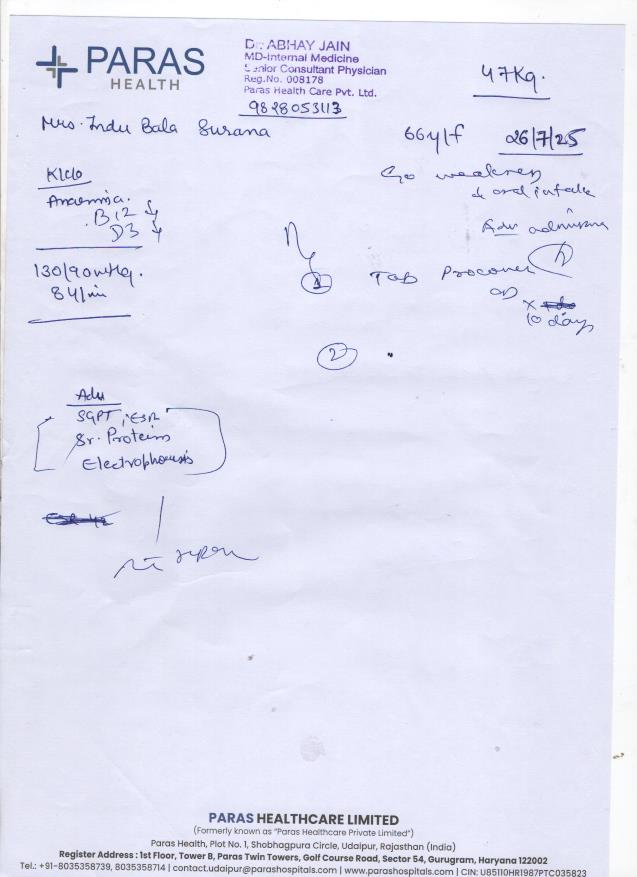 PARAS
HEALTH
Dr. ABHAY JAIN
MD-Internal Medicine
Senior Consultant Physician
Reg.No. 008178
Paras Health Care Pvt. Ltd.
9828053113
47Kg.
Mrs. Indu Bala Surana
66y/f 26/7/25
K/c/o
Anaemia.
B12 ↓
D3 ↓
c/o weakness
↓ oral intake
Adv admission
130/90mmHg.
84/min
1 TAB
OD
x
10 days
2
Adv
SGPT, ESR
Sr. Proteins
Electrophoresis
PARAS HEALTHCARE LIMITED
(Formerly known as "Paras Healthcare Private Limited")
Paras Health, Plot No. 1, Shobhagpura Circle, Udaipur, Rajasthan (India)
Register Address : 1st Floor, Tower B, Paras Twin Towers, Golf Course Road, Sector 54, Gurugram, Haryana 122002
Tel.: +91-8035358739, 8035358714 | contact.udaipur@parashospitals.com | www.parashospitals.com | CIN: U85110HR1987PTC035823